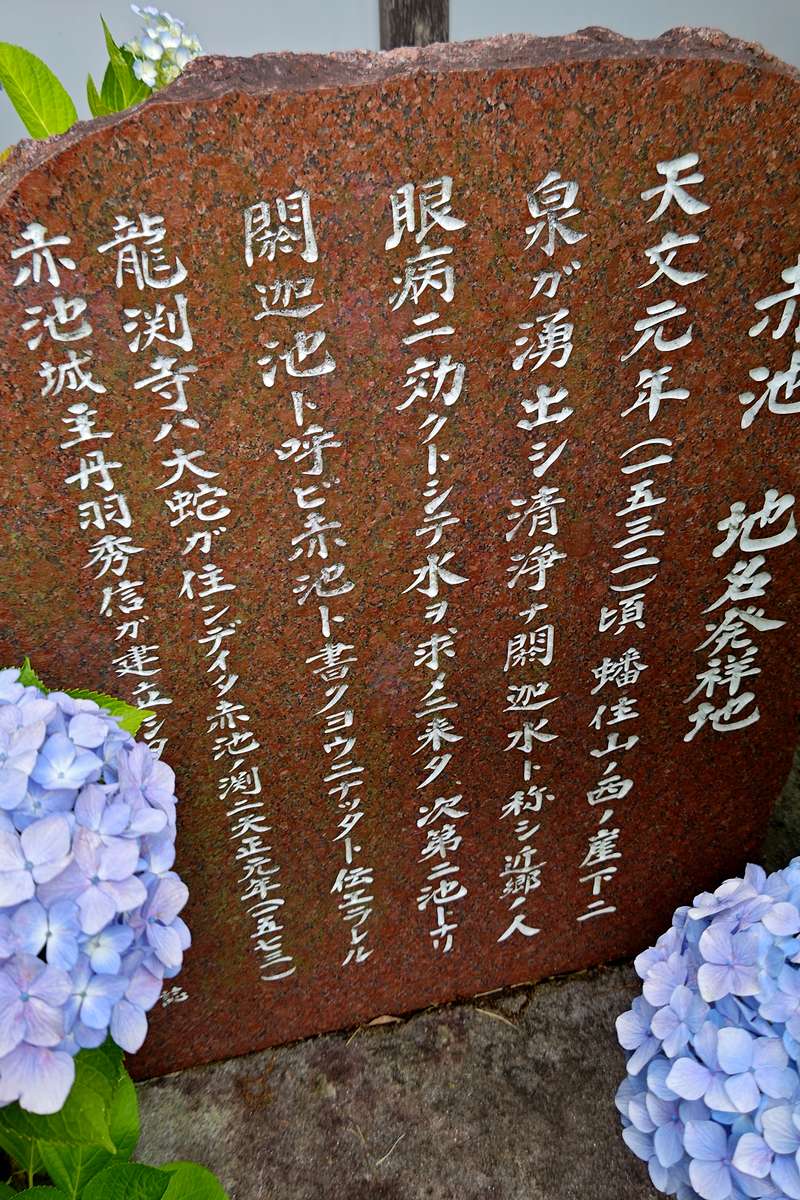 赤池 地名発祥地
天文元年(一五三二)頃 蟠住山ノ西ノ崖下ニ
泉ガ湧出シ清浄ナ閼迦水ト称シ近郷ノ人
眼病ニ効クトシテ水ヲ求メニ来タ 次第ニ池トナリ
閼迦池ト呼ビ赤池ト書クヨウニナッタト伝エラレル
龍渕寺ハ大蛇ガ住ンデイタ赤池ノ渕ニ天正元年(一五七三)
赤池城主丹羽秀信ガ建立シタ
誌